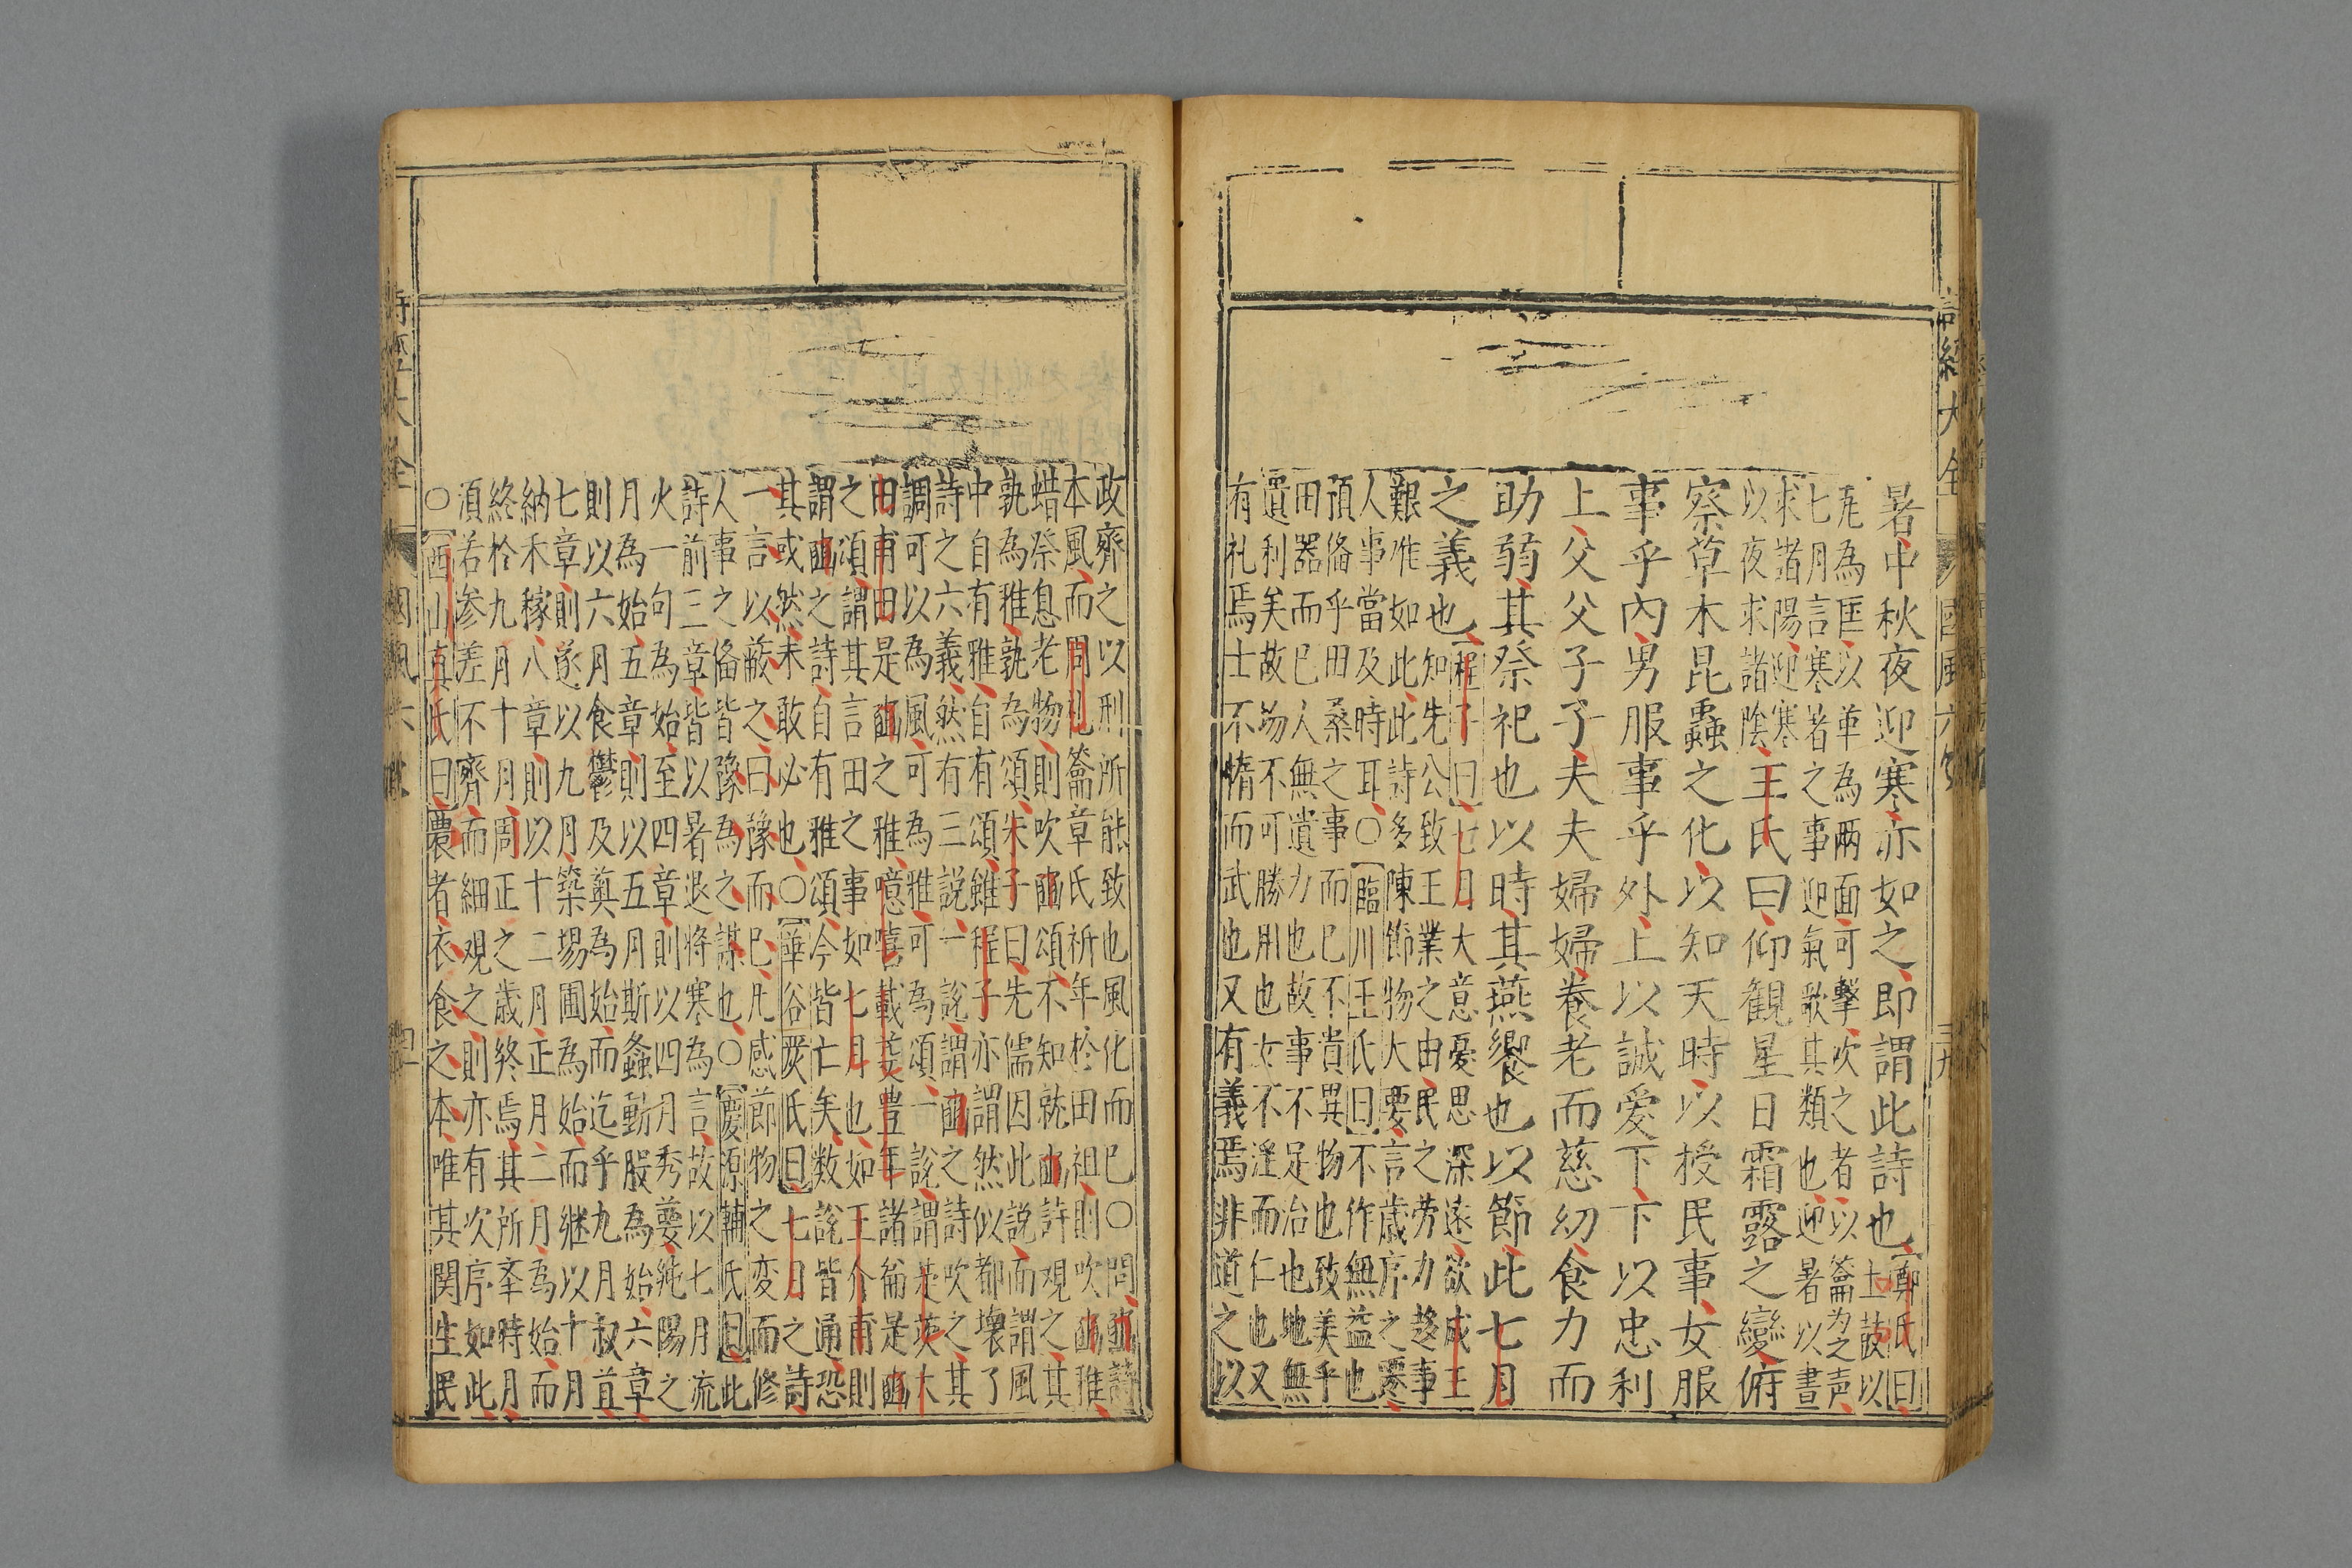 詩經大全
國風六
三十九
暑中秋夜迎寒亦如之即謂此詩也
鄭氏曰
土鼓以
瓦為匡以革為兩面可擊吹之者以籥為之聲
七月言寒暑之事迎氣歌其類也迎暑以晝
求諸陽迎寒
以夜求諸陰
王氏曰仰観星日霜露之變俯
察草木昆蟲之化以知天時以授民事女服
事乎內男服事乎外上以誠愛下下以忠利
上父父子子夫夫婦婦養老而慈幼食力而
助弱其祭祀也以時其燕饗也以節此七月
之義也
程子曰七月大意憂思深遠欲成王
知先公致王業之由民之勞力趍事
艱难如此此詩多陳節物大要言歳序之寒
人事當及時耳○臨川王氏曰不作無益也
預俻乎田桑之事而已不貴異物也致美乎
田器而已人無遺力也故事不足治也地無
遺利矣故物不可勝用也女不淫而仁也又
有礼焉士不惰而武也又有義焉非道之以
政齊之以刑所能致也風化而已○問豳詩
本風而周礼籥章氏祈年於田祖則吹豳雅
蜡祭息老物則吹豳頌不知就豳詩观之其
孰為雅孰為頌朱子曰先儒因此説而謂風
中自有雅自有頌雖程子亦謂然似都壞了
詩之六義然有三說一說謂豳之詩吹之其
調可以為風可為雅可為頌一說謂楚茨大
田甫田是豳之雅噫嘻載芟豊年諸篇是豳
之頌謂其言田之事如七月也如王介甫則
謂豳之詩自有雅頌今皆亡矣数說皆通恐
其或然未敢必也○華谷嚴氏曰七月之詩
一言以蔽之曰豫而已凡感節物之変而修
人事之俻皆豫為之謀也○慶源輔氏曰此
詩前三章皆以暑退将寒為言故以七月流
火一句為始至四章則以四月秀葽純陽之
月為始五章則以五月斯螽動股為始六章
則以六月食鬱及薁為始而迄乎九月叔苴
七章則遂以九月築場圃為始而継以十月
納禾稼八章則以十二月正月二月為始而
終於九月十月周正之歳終焉其所幸時月
湏若參差不齊而細观之則亦有次序如此
○西山真氏曰農者衣食之本唯其関生民
詩經大全
國風六
四十